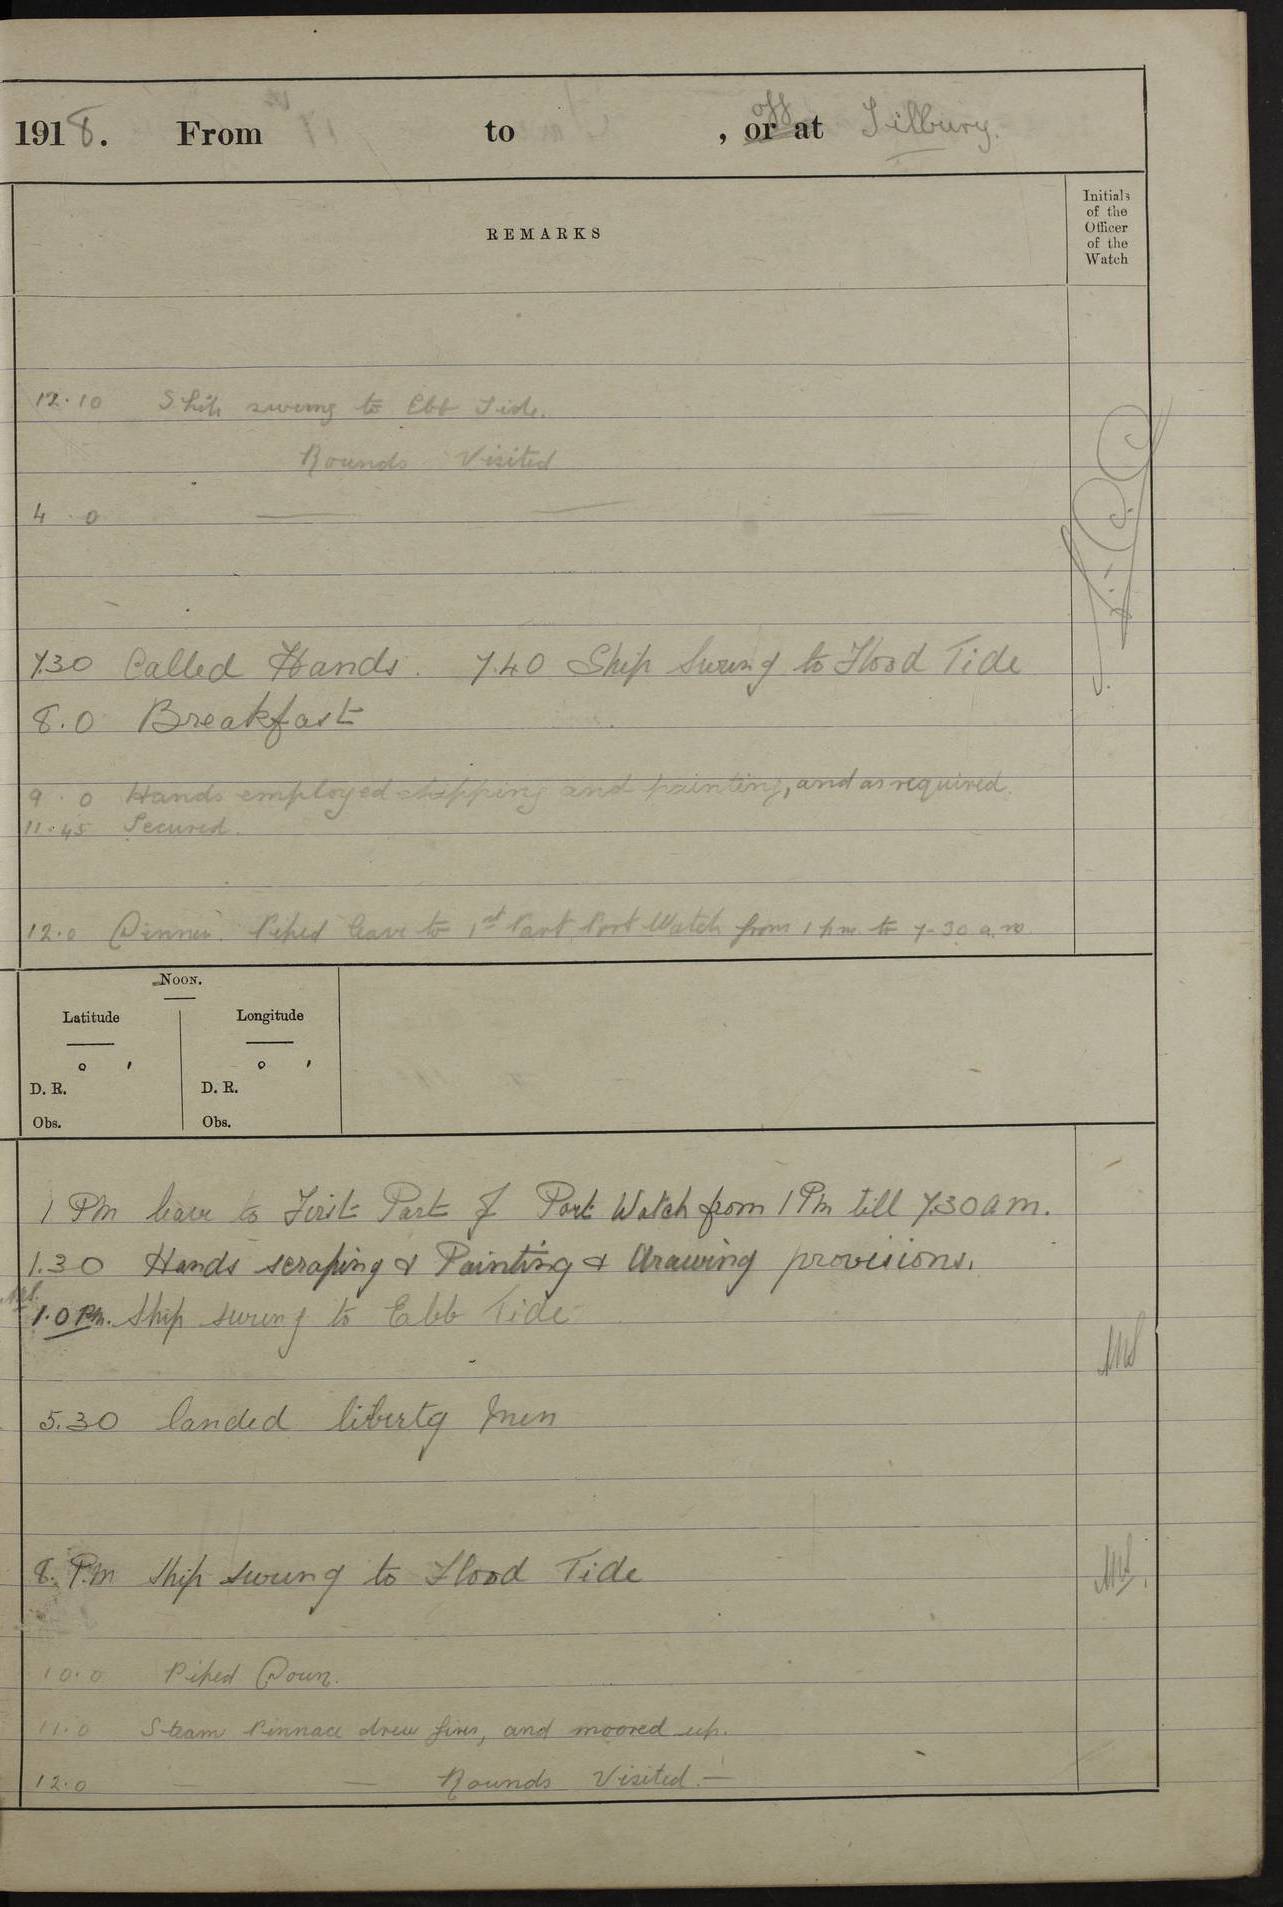 1918. From to , or off at Tilbury.
REMARKS
Initials
of the
Officer
of the
Watch
12.10 Ship swung to Ebb Tide.
Rounds Visited
4.0 — — —
7.30 Called Hands. 7.40 Ship Swung to Flood Tide
8.0 Breakfast
9.0 Hands employed chipping and painting, and as required.
11.45 Secured.
12.0 Dinner. Piped leave to 1st Part Port Watch from 1 pm to 7-30 a.m
NOON.
Latitude Longitude
° ' ° '
D. R. D. R.
Obs. Obs.
1 PM leave to First Part of Port Watch from 1 PM till 7.30 am.
1.30 Hands scraping & Painting & drawing provisions.
1.0 PM. Ship swung to Ebb Tide
5.30 landed liberty men
8. P.M Ship swung to Flood Tide
10.0 Piped Down.
11.0 Steam Pinnace drew fires, and moored up.
12.0 — — Rounds Visited. —